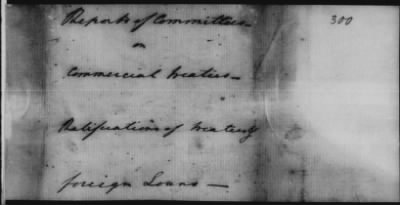 Reports of Committees
300
on
Commercial Treaties—
Ratifications of Treaties
foreign Loans—